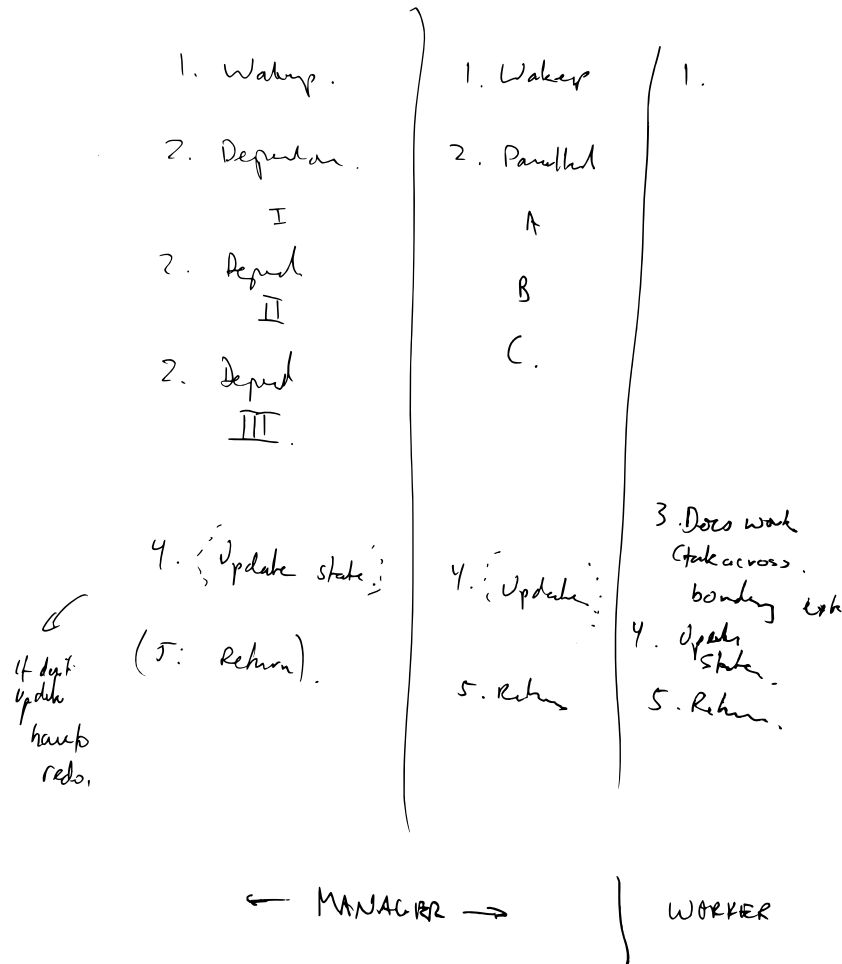 1. Wakeup.
2. Dependan.
I
2. Depend
II
2. Depend
III.
4. Update state
(5: Return).
If don't
update
have to
redo.
1. Wakeup
2. Parallel
A
B
C.
4. Update
5. Return
1.
3. Does work
(talk across.
boundary
4. Update
State.
5. Return.
← MANAGER →
WORKER